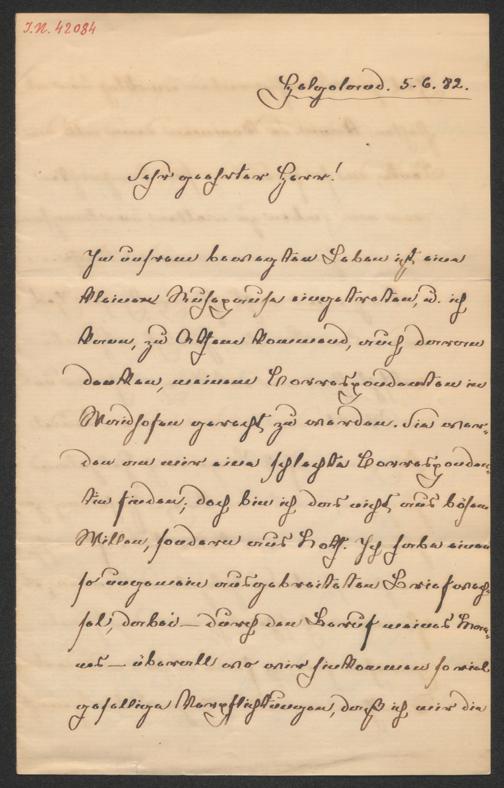 I.N. 42084
Helgoland. 5.6.82.
Sehr geehrter Herr!
In unsrem bewegten Leben ist eine
kleine Ruhepause eingetreten, u. ich
kann, zu Athem kommend, auch daran
denken, meinem Correspondenten in
Waidhofen gerecht zu werden. Sie wer-
den an mir eine schlechte Corresponden-
tin finden, doch bin ich das nicht aus bösem
Willen, sondern aus Noth. Ich habe einen
so ungemein ausgebreiteten Briefwech-
sel, dabei – durch den Beruf meines Man-
nes – überall wo wir hinkommen so viel
gesellige Verpflichtungen, daß ich mir die